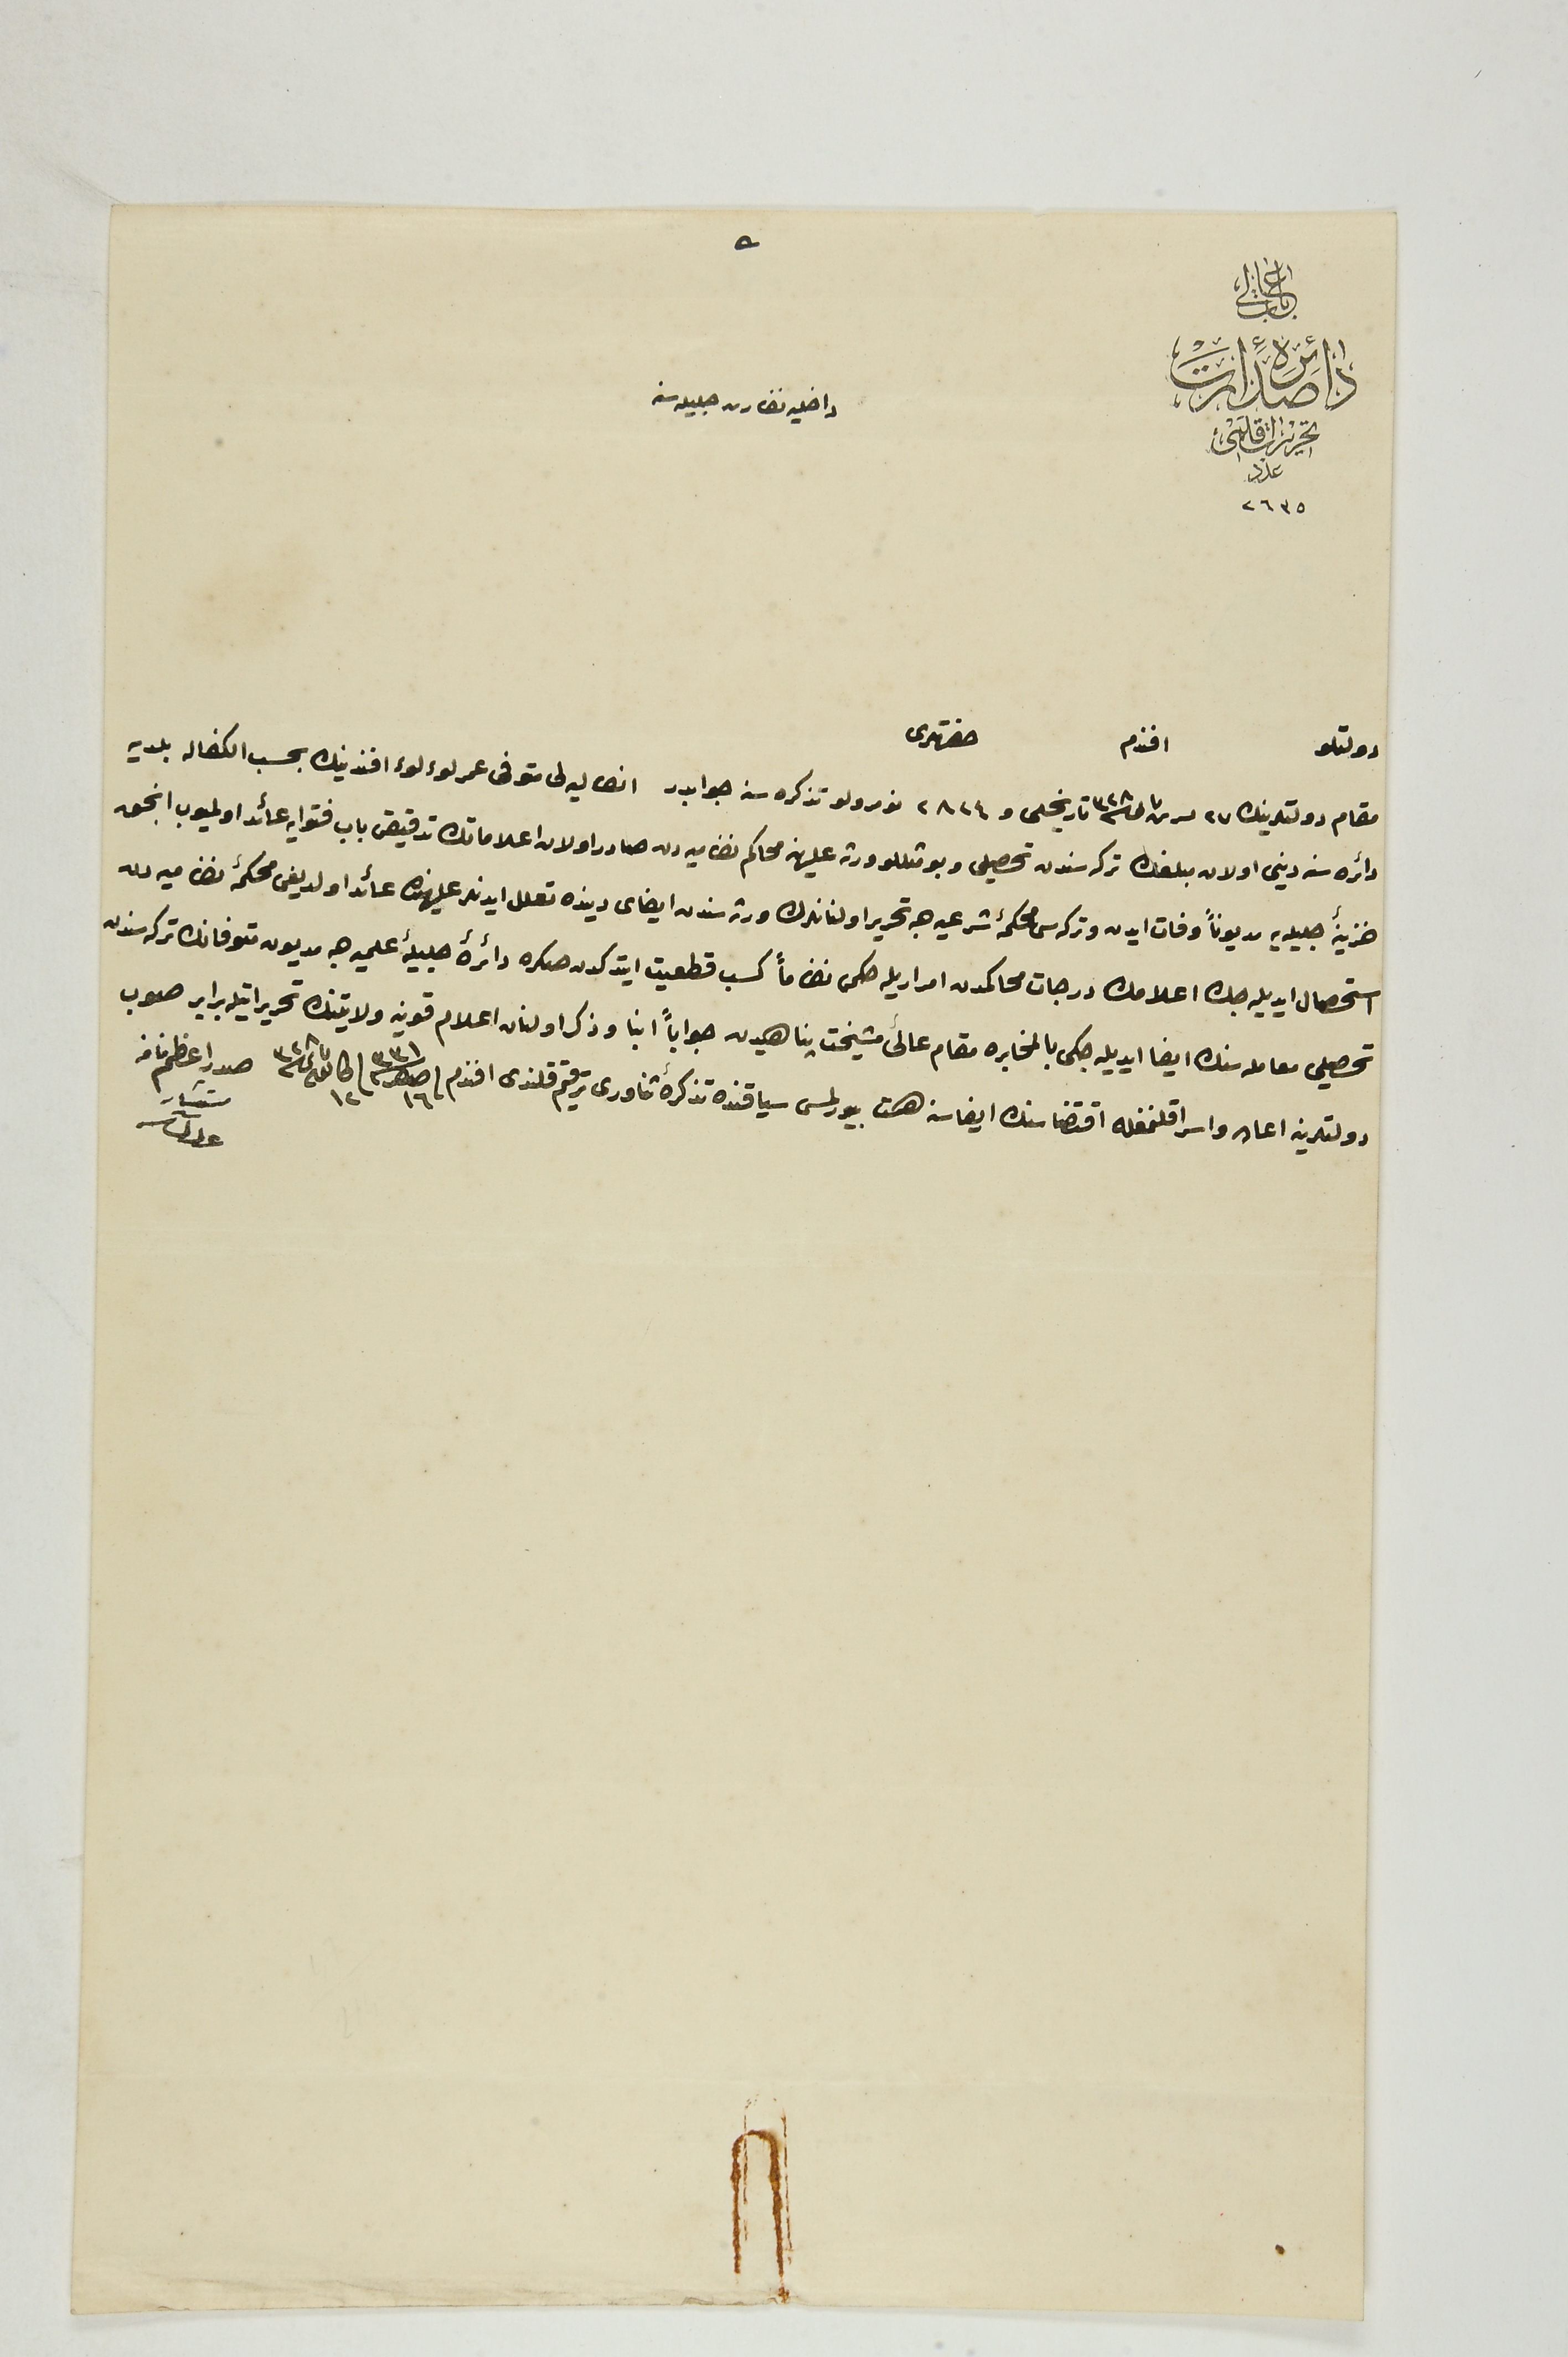 ه
باب عالی
دائره صدارت
تحریرات قلمی
عدد
٢٦٣٥
داخلیه نظارت جلیله‌سنه
دولتلو افندم حضرتلری
مقام دولتلرینك ٢٧ ٣٢٨ تاریخلی و ٢٨٢٤ نومرولو تذكره‌سنه جوابدر انطالیه‌لی متوفی عمر لوءلوء افندینك بحسب الكفاله بلدیه
دائره‌سنه دینی اولان مبلغك تركه‌سندن تحصیلی و بو مثللو ورثه علیهنه محاكم نظامیه‌دن صادر اولان اعلاماتك تدقیقی باب فتوایه عائد اولمیوب انجق
خزینهٔ جلیله‌یه مدیوناً وفات ایدن و تركه‌سی محكمهٔ شرعیه‌جه تحریر اولنانلرك ورثه‌سندن ایفای دینده تعلل ایدنلر علیهنده عائد اولدیغی محكمهٔ نظامیه‌دن
استحصال ایدیله‌جك اعلامك درجات محاكمدن امراریله حكمی نظاماً كسب قطعیت ایتدكدن صكره دائرهٔ جلیلهٔ علمیه‌جه مدیون متوفانك تركه‌سندن
تحصیلی معامله‌سنك ایفا ایدیله‌جكی بالمخابره مقام عالئ مشیخت پناهیدن جواباً انبا و ذكر اولنان اعلام قونیه ولایتنك تحریراتیله برابر صوب
دولتلرینه اعاده و اسرا قلنمغله اقتضاسنك ایفاسنه همت بیورلمسی سیاقنده تذكرهٔ ثناوری ترقیم قلندی افندم فی ١٦ صفر ٣٣١ فی ١٢ كانون ثانی ٣٢٨
صدر اعظم نامنه
مستشار